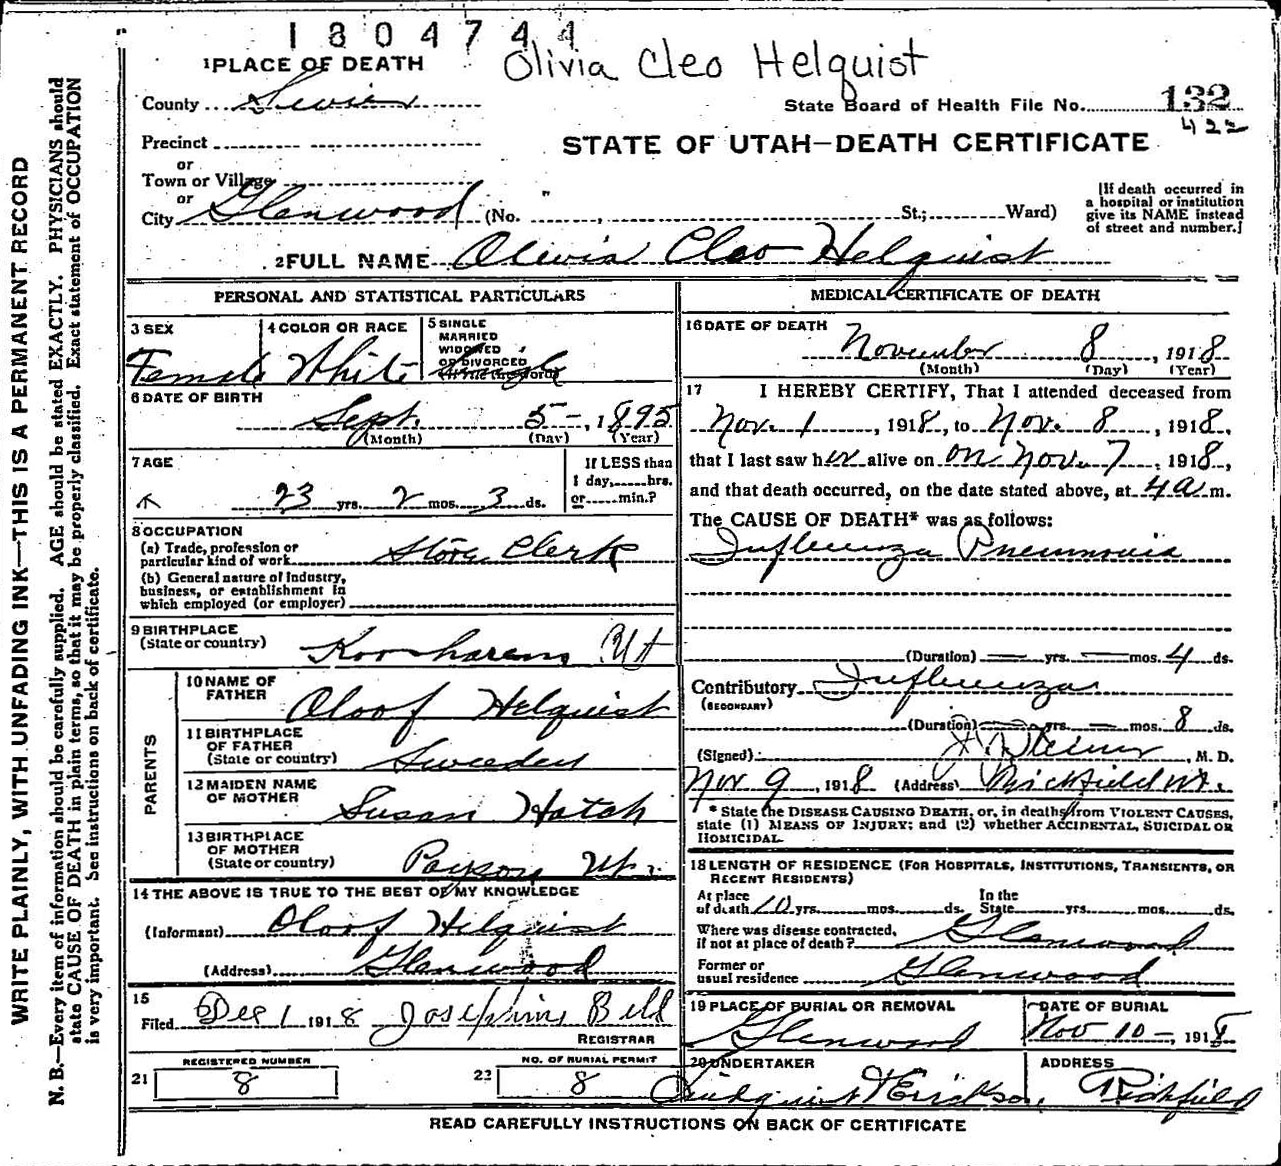 1804744
Olivia Cleo Helquist
1 PLACE OF DEATH
County Sevier
State Board of Health File No. 132
422
Precinct
STATE OF UTAH—DEATH CERTIFICATE
or
Town or Village
or
City Glenwood (No. " , St.; Ward)
[If death occurred in a hospital or institution give its NAME instead of street and number.]
2 FULL NAME Olivia Cleo Helquist
PERSONAL AND STATISTICAL PARTICULARS
3 SEX
Female
4 COLOR OR RACE
White
5 SINGLE
MARRIED
WIDOWED
OR DIVORCED
(Write the word)
Single
6 DATE OF BIRTH
Sept. 5-, 1895
(Month) (Day) (Year)
7 AGE
23 yrs. 2 mos. 3 ds.
If LESS than
1 day, hrs.
or min.?
8 OCCUPATION
(a) Trade, profession or
particular kind of work Store Clerk
(b) General nature of industry,
business, or establishment in
which employed (or employer)
9 BIRTHPLACE
(State or country) Koosharem Ut
PARENTS
10 NAME OF
FATHER Oloof Helquist
11 BIRTHPLACE
OF FATHER
(State or country) Sweeden
12 MAIDEN NAME
OF MOTHER Susan Hatch
13 BIRTHPLACE
OF MOTHER
(State or country) Payson Ut.
14 THE ABOVE IS TRUE TO THE BEST OF MY KNOWLEDGE
(Informant) Oloof Helquist
(Address) Glenwood
15
Filed Dec 1 1918 Josephine Bell
REGISTRAR
REGISTERED NUMBER
21 8
NO. OF BURIAL PERMIT
22 8
MEDICAL CERTIFICATE OF DEATH
16 DATE OF DEATH
November 8, 1918
(Month) (Day) (Year)
17 I HEREBY CERTIFY, That I attended deceased from
Nov. 1, 1918, to Nov. 8, 1918,
that I last saw her alive on on Nov. 7, 1918,
and that death occurred, on the date stated above, at 4 a m.
The CAUSE OF DEATH* was as follows:
Influenza Pneumonia
(Duration) — yrs. — mos. 4 ds.
Contributory Influenza
(SECONDARY)
(Duration) — yrs. — mos. 8 ds.
(Signed) , M. D.
Nov 9, 1918 (Address) Richfield Ut.
* State the DISEASE CAUSING DEATH, or, in deaths from VIOLENT CAUSES,
state (1) MEANS OF INJURY; and (2) whether ACCIDENTAL, SUICIDAL OR
HOMICIDAL.
18 LENGTH OF RESIDENCE (FOR HOSPITALS, INSTITUTIONS, TRANSIENTS, OR
RECENT RESIDENTS)
At place
of death 10 yrs. mos. ds.
In the
State yrs. mos. ds.
Where was disease contracted,
if not at place of death? Glenwood
Former or
usual residence Glenwood
19 PLACE OF BURIAL OR REMOVAL
Glenwood
DATE OF BURIAL
Nov 10-, 1918
20 UNDERTAKER
& Erickson,
ADDRESS
Richfield
READ CAREFULLY INSTRUCTIONS ON BACK OF CERTIFICATE
WRITE PLAINLY, WITH UNFADING INK—THIS IS A PERMANENT RECORD
N. B.—Every item of information should be carefully supplied. AGE should be stated EXACTLY. PHYSICIANS should
state CAUSE OF DEATH in plain terms, so that it may be properly classified. Exact statement of OCCUPATION
is very important. See instructions on back of certificate.